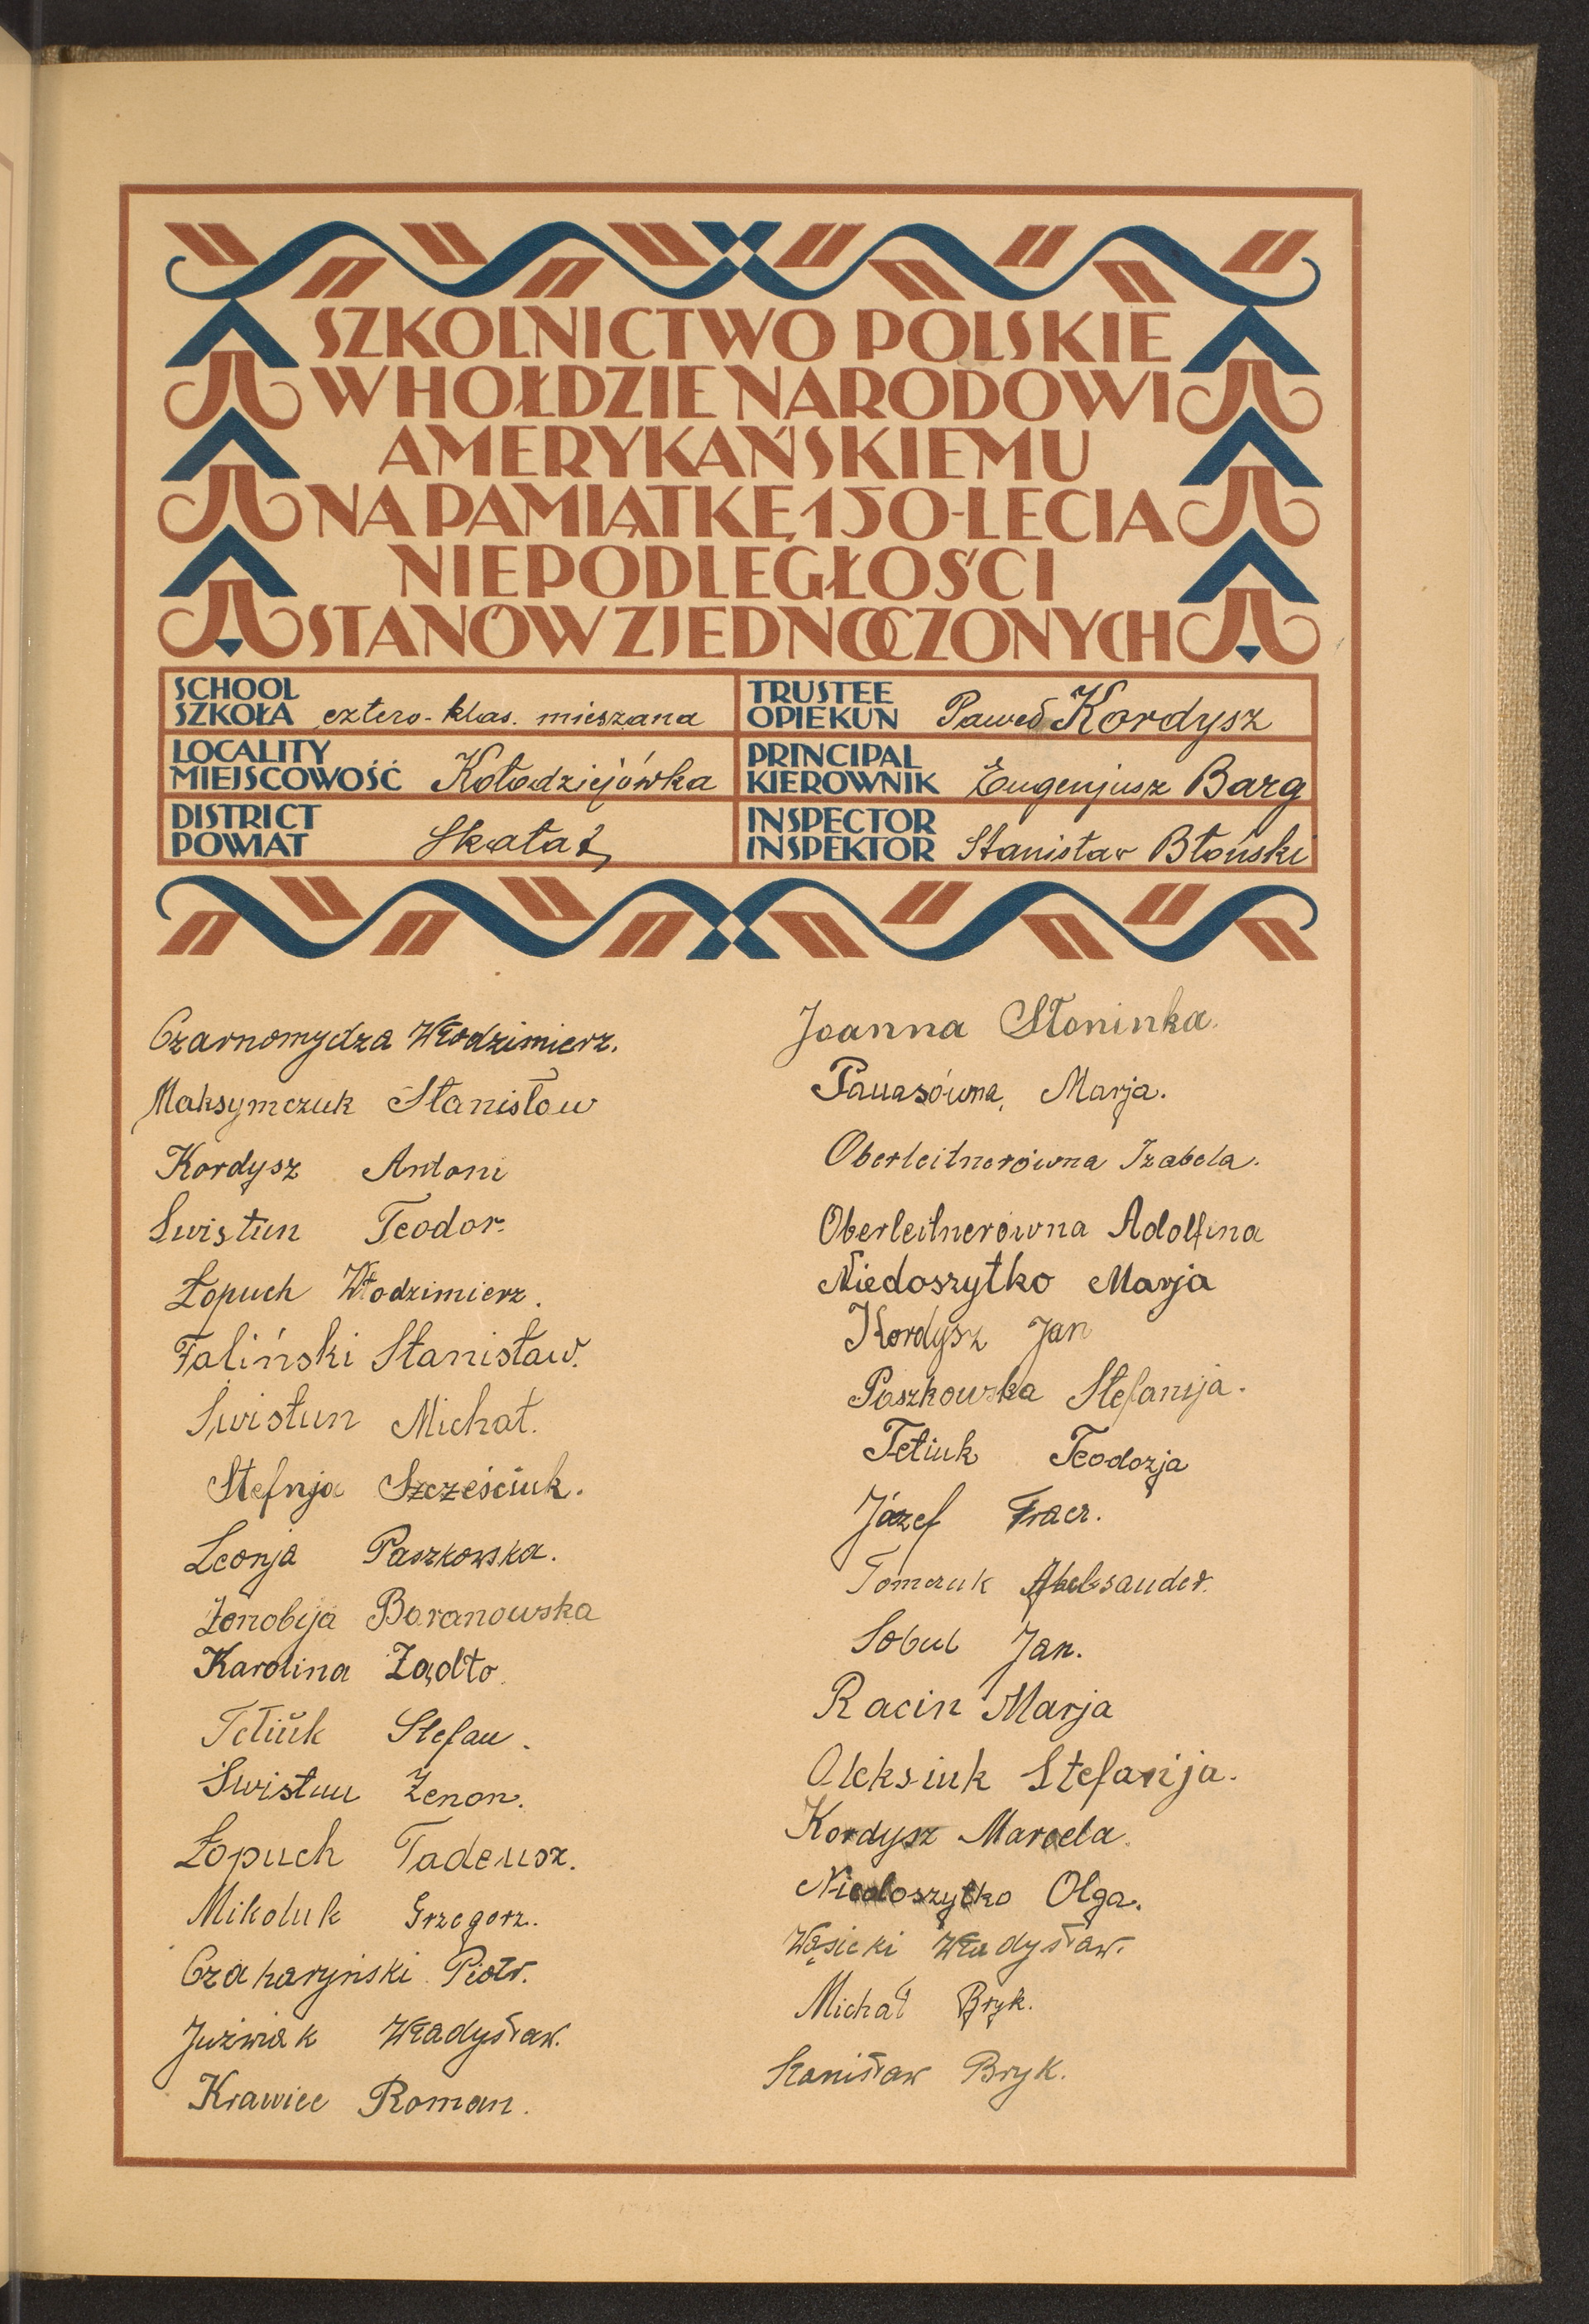 SZKOLNICTWO POLSKIE
W HOŁDZIE NARODOWI
AMERYKAŃSKIEMU
NA PAMIĄTKĘ 150-LECIA
NIEPODLEGŁOŚCI
STANÓW ZJEDNOCZONYCH
SCHOOL
SZKOŁA cztero-klas. mieszana
TRUSTEE
OPIEKUN Paweł Kordysz
LOCALITY
MIEJSCOWOŚĆ Kołodziejówka
PRINCIPAL
KIEROWNIK Eugenjusz Barg
DISTRICT
POWIAT Skałat
INSPECTOR
INSPEKTOR Stanisław Błoński
Czarnomydza Włodzimierz.
Maksymczuk Stanisław
Kordysz Antoni
Swistun Teodor.
Łopuch Włodzimierz.
Faliński Stanisław.
Swistun Michał.
Stefnja Szcześciuk.
Leonja Paszkowska.
Zenobija Baranowska
Karolina Żądło.
Tetiuk Stefan.
Swistun Zenon.
Łopuch Tadeusz.
Mikoluk Grzegorz.
Czakaryński Piotr.
Juźwiak Władysław.
Krawiec Roman.
Joanna Słoninka.
Panasówna, Marja.
Oberleitnerówna Izabela.
Oberleitnerówna Adolfina
Niedoszytko Marja
Kordysz Jan
Paszkowska Stefanija.
Tetiuk Teodozja
Józef
Tomczuk
Sobul Jan.
Racin Marja
Oleksiuk Stefanija.
Kordysz Marcela.
Niedoszytko Olga.
Wąsicki Władysław.
Michał Bryk.
Stanisław Bryk.